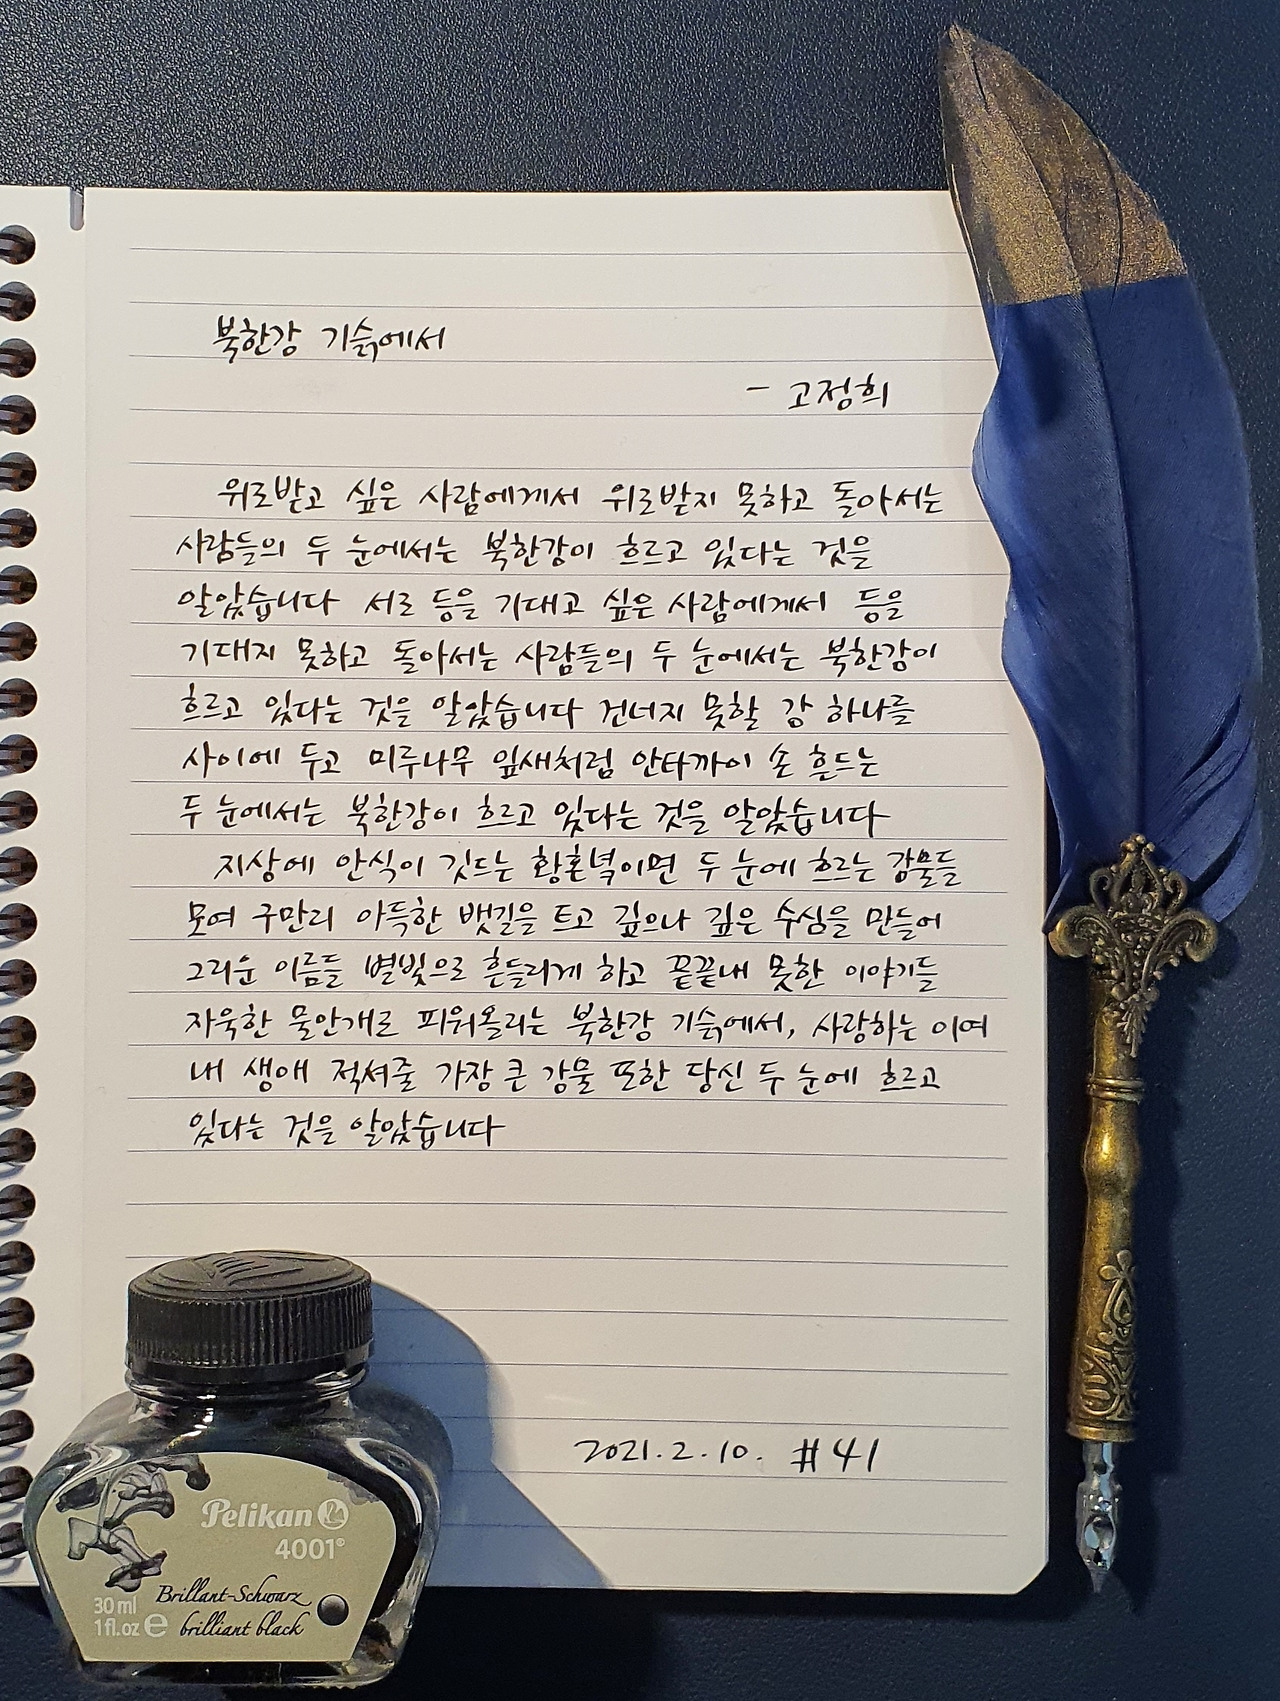 북한강 기슭에서
- 고정희
위로받고 싶은 사람에게서 위로받지 못하고 돌아서는
사람들의 두 눈에서는 북한강이 흐르고 있다는 것을
알았습니다 서로 등을 기대고 싶은 사람에게서 등을
기대지 못하고 돌아서는 사람들의 두 눈에서는 북한강이
흐르고 있다는 것을 알았습니다 건너지 못할 강 하나를
사이에 두고 미루나무 잎새처럼 안타까이 손 흔드는
두 눈에서는 북한강이 흐르고 있다는 것을 알았습니다
지상에 안식이 깃드는 황혼녘이면 두 눈에 흐르는 강물들
모여 구만리 아득한 뱃길을 트고 깊으나 깊은 수심을 만들어
그리운 이름들 별빛으로 흔들리게 하고 끝끝내 못한 이야기들
자욱한 물안개로 피워올리는 북한강 기슭에서, 사랑하는 이여
내 생애 적셔줄 가장 큰 강물 또한 당신 두 눈에 흐르고
있다는 것을 알았습니다
2021.2.10. #41
Pelikan
4001®
Brillant-Schwarz
30 ml
1 fl.oz e brilliant black